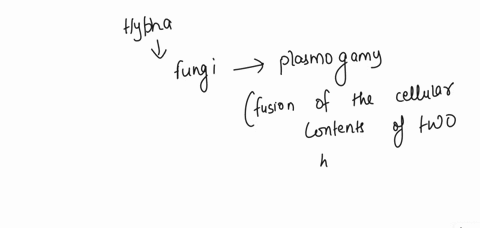 Hypha
fungi → plasmogamy
(fusion of the cellular
contents of two
h